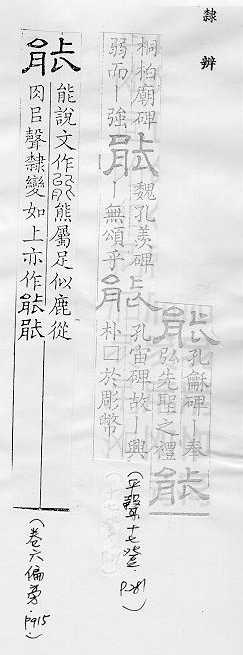 隸辨
能孔龢碑丨奉
弘先聖之禮能
桐柏廟碑
弱而丨強能魏孔羨碑
丨無頌乎能孔宙碑故丨興
朴囗於彫幣
(平聲十七登．P.281)
能
能說文作熊屬足似鹿從
肉㠯聲隸變如上亦作能能
(卷六偏旁．P915)